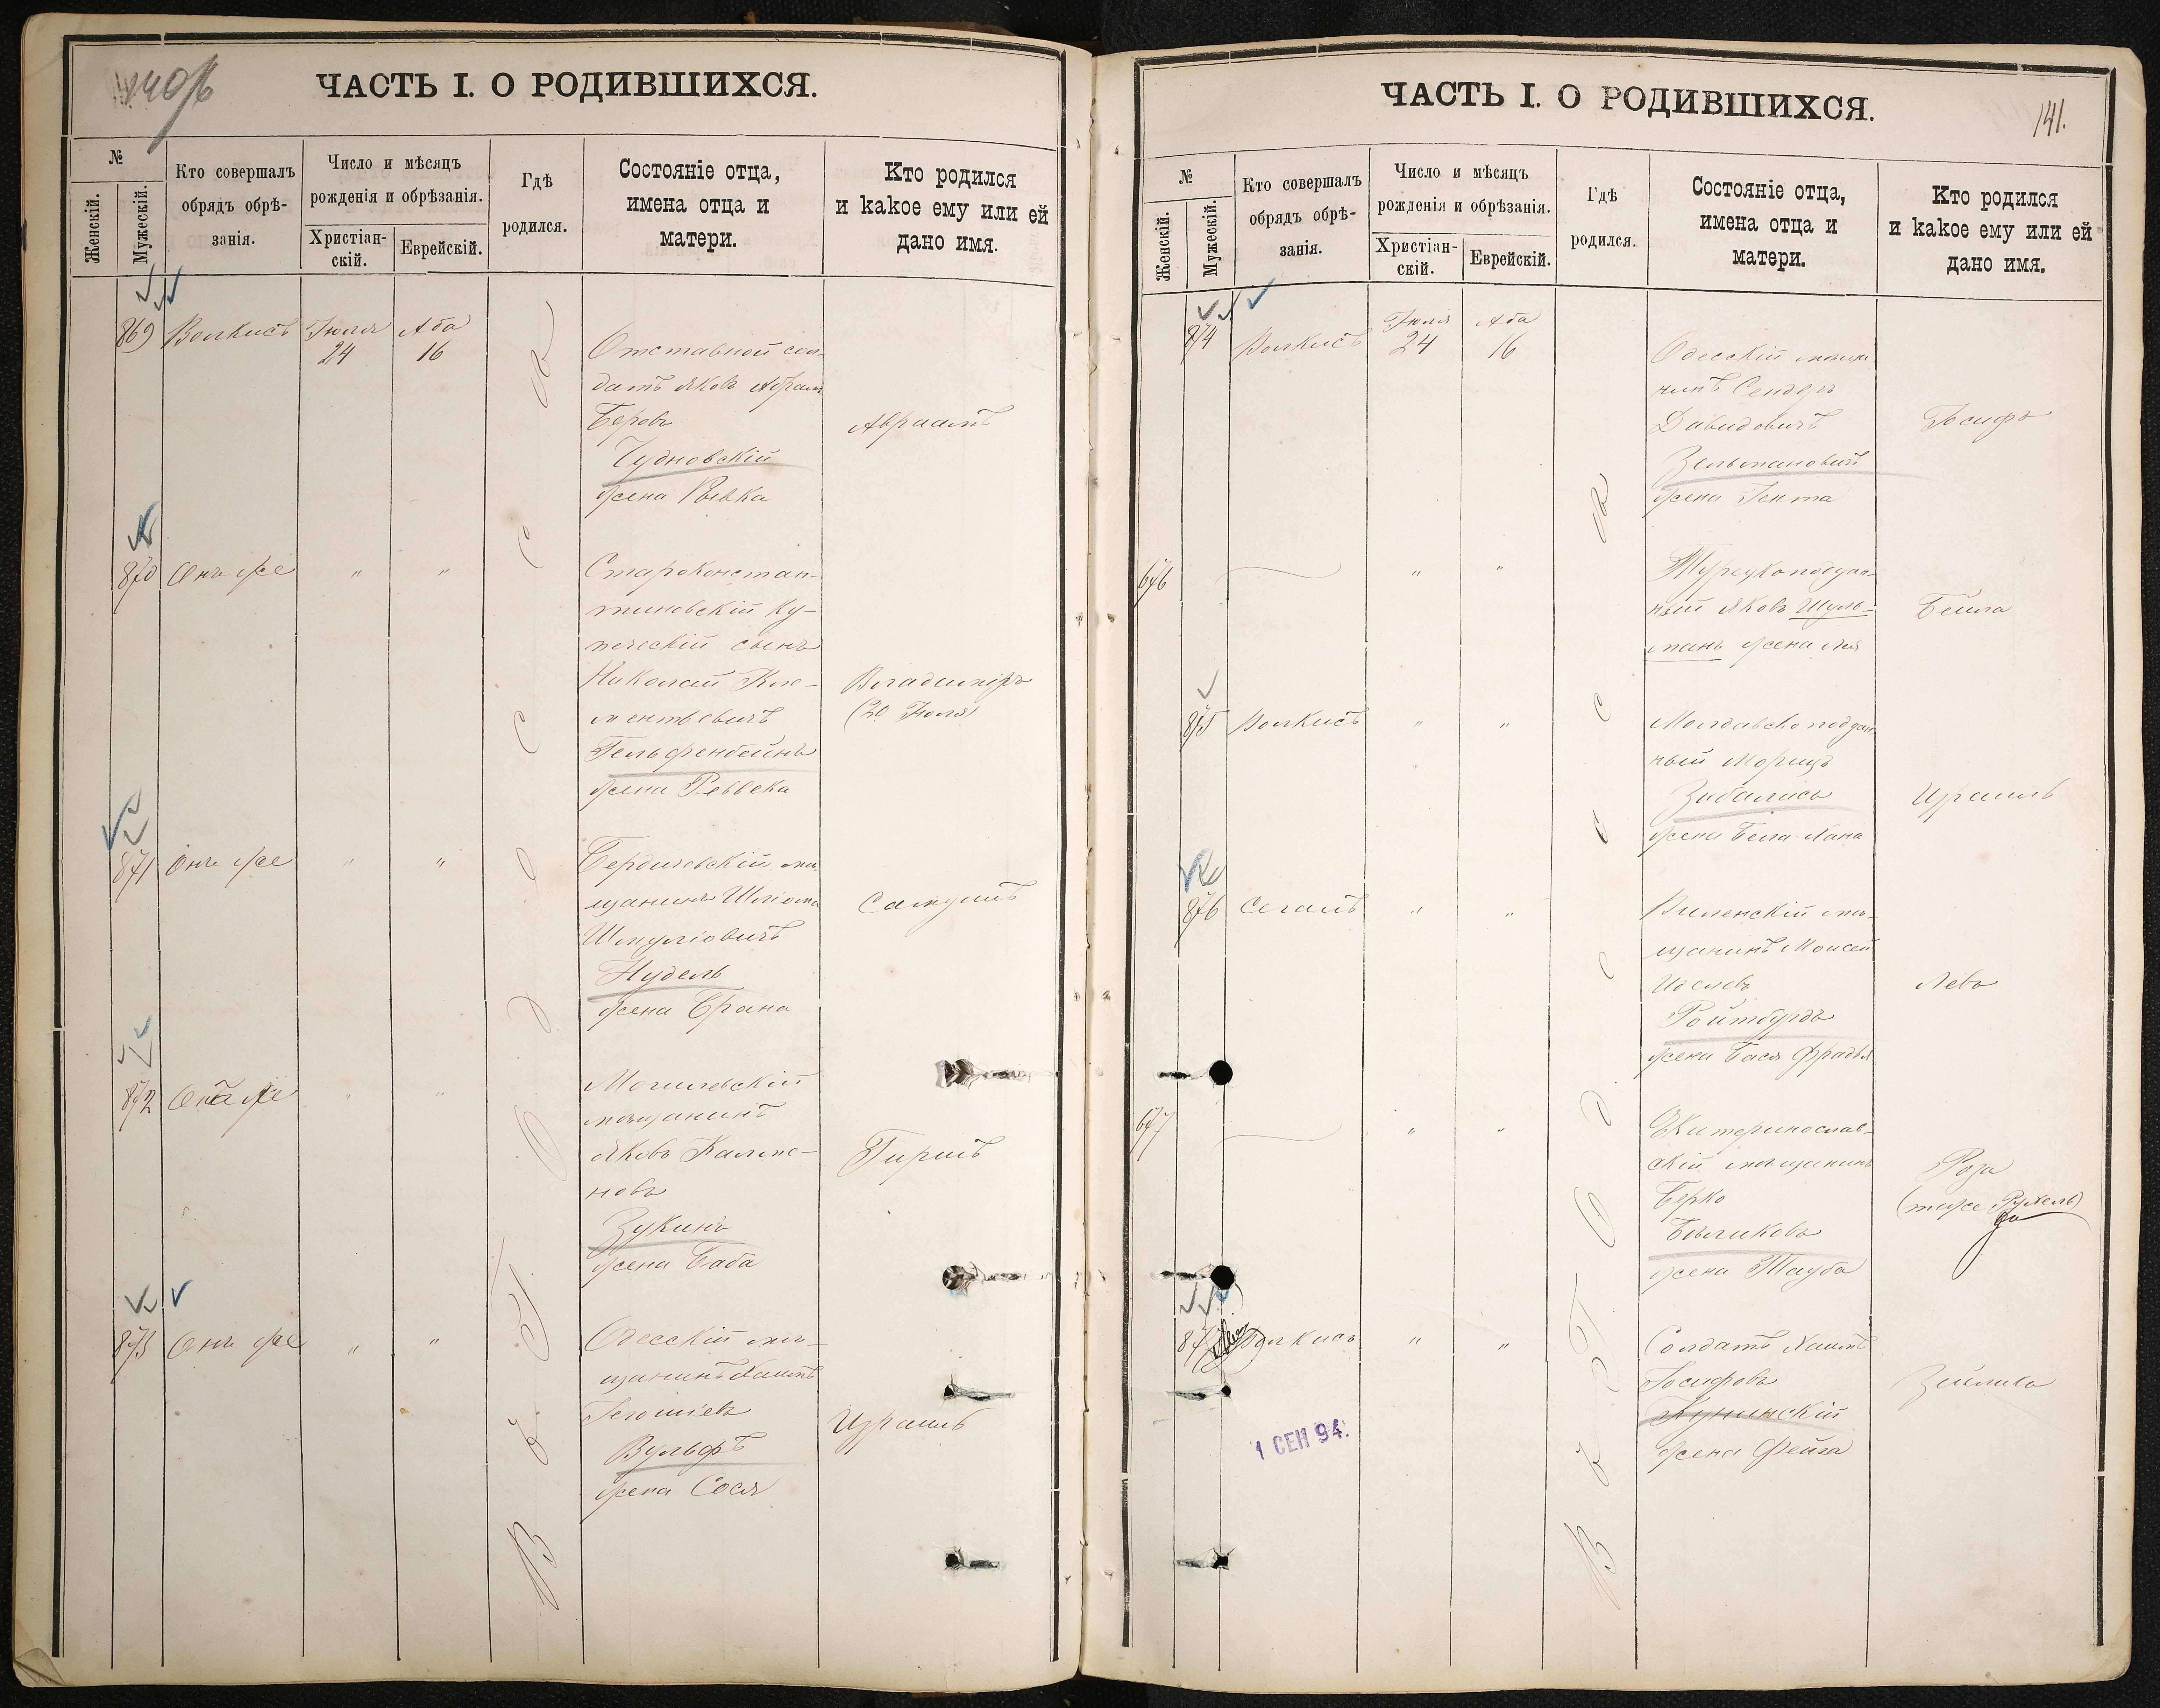 140/б
ЧАСТЬ I. О РОДИВШИХСЯ.
№
Женскій.
Мужескій.
Кто совершалъ
обрядъ обрѣ-
занія.
Число и мѣсяцъ
рожденія и обрѣзанія.
Христіан-
скій.
Еврейскій.
Гдѣ
родился.
Состояніе отца,
имена отца и
матери.
Кто родился
и какое ему или ей
дано имя.
Въ г. Одесса
869 Волкисъ Іюля 24 Аба 16
Отставной сол-
датъ Яковъ Абрам
Беровъ
Чудновскій
жена Рывка
Авраамъ
870 Онъ же " "
Староконстан-
тиновскій ку-
печескій сынъ
Николай Кле-
ментьевичъ
Гельфенбейнъ
жена Реввека
Владиміръ
(20 Іюля)
871 Онъ же " "
Бердичевскій мѣ-
щанинъ Шліома
Шмуліовичъ
Нудель
жена Брана
Самуилъ
872 Онъ же " "
Могилевскій
мѣщанинъ
Яковъ Калма-
новъ
Зукинъ
жена Баба
Гиршъ
873 Онъ же " "
Одесскій мѣ-
щанинъ Хаимъ
Гегошіевъ
Вульфъ
жена Сося
Израиль
141.
ЧАСТЬ I. О РОДИВШИХСЯ.
№
Женскій.
Мужескій.
Кто совершалъ
обрядъ обрѣ-
занія.
Число и мѣсяцъ
рожденія и обрѣзанія.
Христіан-
скій.
Еврейскій.
Гдѣ
родился.
Состояніе отца,
имена отца и
матери.
Кто родился
и какое ему или ей
дано имя.
Въ г. Одесса
874 Волкисъ Іюля 24 Аба 16
Одесскій мѣща-
нинъ Сендеръ
Давидовичъ
Зельмановичъ
жена Гента
Іосифъ
676 " "
Турецкоподдан-
ный Яковъ Шуль-
манъ жена Лея
Бейла
875 Волкисъ " "
Молдавскоподдан-
ный Морицъ
Зибалисъ
жена Бела-Хана
Израиль
876 Сегалъ " "
Виленскій мѣ-
щанинъ Моисей
Иделевъ
Ройтбурдъ
жена Бася Фрадья
Левъ
677 " "
Екатеринослав-
скій мѣщанинъ
Берко
Быликовъ
жена Тауба
Роза
(тоже Рухель)
877 Волкисъ " "
Солдатъ Хаимъ
Іосифовъ
Кунинскій
жена Фейга
Зейликъ
1 СЕН 94.